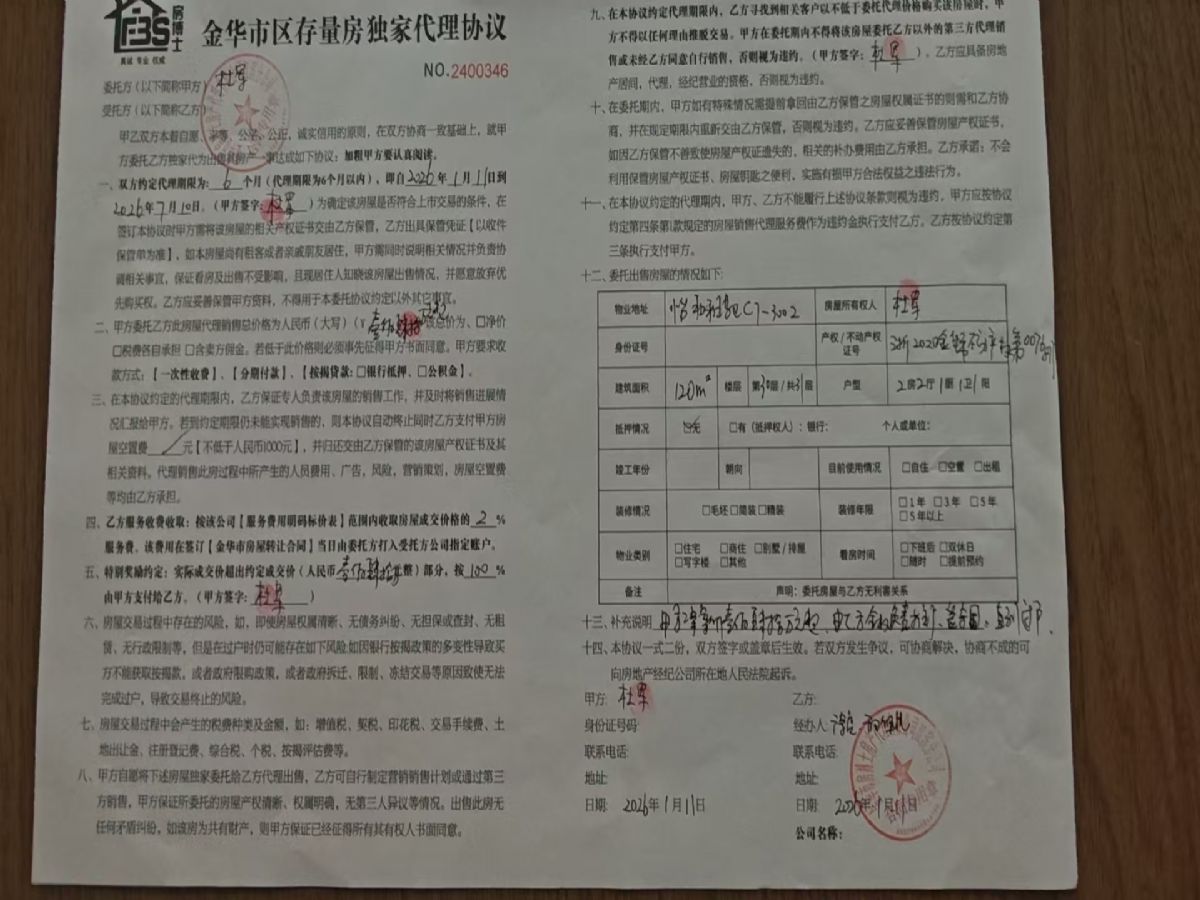 FBS
房博士
真诚 专业 权威
金华市区存量房独家代理协议
NO.2400346
委托方（以下简称甲方） 杜军
受托方（以下简称乙方）
甲乙双方本着自愿、平等、公平、公正、诚实信用的原则，在双方协商一致基础上，就甲
方委托乙方独家代为出售其房产一事达成如下协议：加粗甲方要认真阅读。
一、双方约定代理期限为：6 个月（代理期限为6个月以内），即自2026年1月11日到
2026年7月10日。（甲方签字：杜军）为确定该房屋是否符合上市交易的条件，在
签订本协议时甲方需将该房屋的相关产权证书交由乙方保管，乙方出具保管凭证【以收件
保管单为准】，如本房屋尚有租客或者亲戚朋友居住，甲方需同时说明相关情况并负责协
调相关事宜，保证看房及出售不受影响，且现居住人知晓该房屋出售情况，并愿意放弃优
先购买权。乙方应妥善保管甲方资料，不得用于本委托协议约定以外其它事宜。
二、甲方委托乙方此房屋代理销售总价格为人民币（大写）（¥ 该总价为、□净价
□税费各自承担 □含卖方佣金。若低于此价格则必须事先征得甲方书面同意。甲方要求收
款方式：【一次性收费】、【分期付款】、【按揭贷款：□银行抵押、□公积金】。
三、在本协议约定的代理期限内，乙方保证专人负责该房屋的销售工作，并及时将销售进展情
况汇报给甲方。若到约定期限仍未能实现销售的，则本协议自动终止同时乙方支付甲方房
屋空置费 元【不低于人民币1000元】，并归还交由乙方保管的该房屋产权证书及其
相关资料。代理销售此房过程中所产生的人员费用、广告，风险，营销策划，房屋空置费
等均由乙方承担。
四、乙方服务收费收取：按该公司【服务费用明码标价表】范围内收取房屋成交价格的 2 %
服务费，该费用在签订【金华市房屋转让合同】当日由委托方打入受托方公司指定账户。
五、特别奖励约定：实际成交价超出约定成交价（人民币 整）部分，按 100 %
由甲方支付给乙方。（甲方签字：杜军）
六、房屋交易过程中存在的风险，如，即使房屋权属清晰、无债务纠纷、无担保或查封、无租
赁、无行政限制等，但是在过户时仍可能存在如下风险如因银行按揭政策的多变性导致买
方不能获取按揭款，或者政府限购政策，或者政府拆迁、限制、冻结交易等原因致使无法
完成过户，导致交易终止的风险。
七、房屋交易过程中会产生的税费种类及金额，如：增值税、契税、印花税、交易手续费、土
地出让金、注册登记费、综合税、个税、按揭评估费等。
八、甲方自愿将下述房屋独家委托给乙方代理出售，乙方可自行制定营销销售计划或通过第三
方销售，甲方保证所委托的房屋产权清晰、权属明确，无第三人异议等情况。出售此房无
任何矛盾纠纷，如该房为共有财产，则甲方保证已经征得所有其有权人书面同意。
九、在本协议约定代理期限内，乙方寻找到相关客户以不低于委托代理价格购买该房屋时，甲
方不得以任何理由推脱交易。甲方在委托期内不得将该房屋委托乙方以外的第三方代理销
售或未经乙方同意自行销售，否则视为违约。（甲方签字：杜军），乙方应具备房地
产居间，代理，经纪营业的资格，否则视为违约。
十、在委托期内，甲方如有特殊情况需提前拿回由乙方保管之房屋权属证书的则需和乙方协
商，并在现定期限内重新交由乙方保管，否则视为违约。乙方应妥善保管房屋产权证书，
如因乙方保管不善致使房屋产权证遗失的，相关的补办费用由乙方承担。乙方承诺：不会
利用保管房屋产权证书、房屋钥匙之便利，实施有损甲方合法权益之违法行为。
十一、在本协议约定的代理期内，甲方、乙方不能履行上述协议条款则视为违约，甲方应按协议
约定第四条第1款规定的房屋销售代理服务费作为违约金执行支付乙方。乙方按协议约定第
三条执行支付甲方。
十二、委托出售房屋的情况如下:
物业地址 C7-3002 房屋所有权人 杜军
身份证号 产权／不动产权证号
建筑面积 120m² 楼层 第30层/共31层 户型 2房2厅1厨1卫1阳
抵押情况 ☑无 □有（抵押权人）：银行： 个人或单位：
竣工年份 朝向 目前使用情况 □自住 □空置 □出租
装修情况 □毛坯 □简装 □精装 装修年限 □1年 □3年 □5年 □5年以上
物业类别 □住宅 □商住 □别墅／排屋 □写字楼 □其他 看房时间 □下班后 □双休日 □随时 □提前预约
备注 声明：委托房屋与乙方无利害关系
十三、补充说明
十四、本协议一式二份，双方签字或盖章后生效。若双方发生争议，可协商解决，协商不成的可
向房地产经纪公司所在地人民法院起诉。
甲方: 杜军 乙方:
身份证号码: 经办人:
联系电话: 联系电话:
地址: 地址:
日期: 2026年1月11日 日期: 2026年1月11日
公司名称: